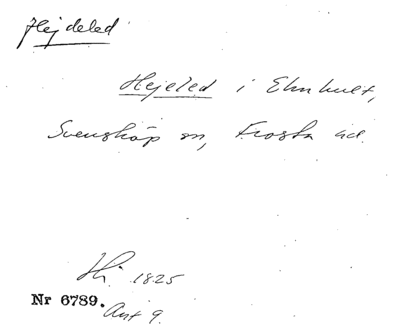 Hejdeled
Hejeled i Elmhult,
Svensköp sn, Frosta hd.
Hi. 1825
Nr 6789.
Avt 9.